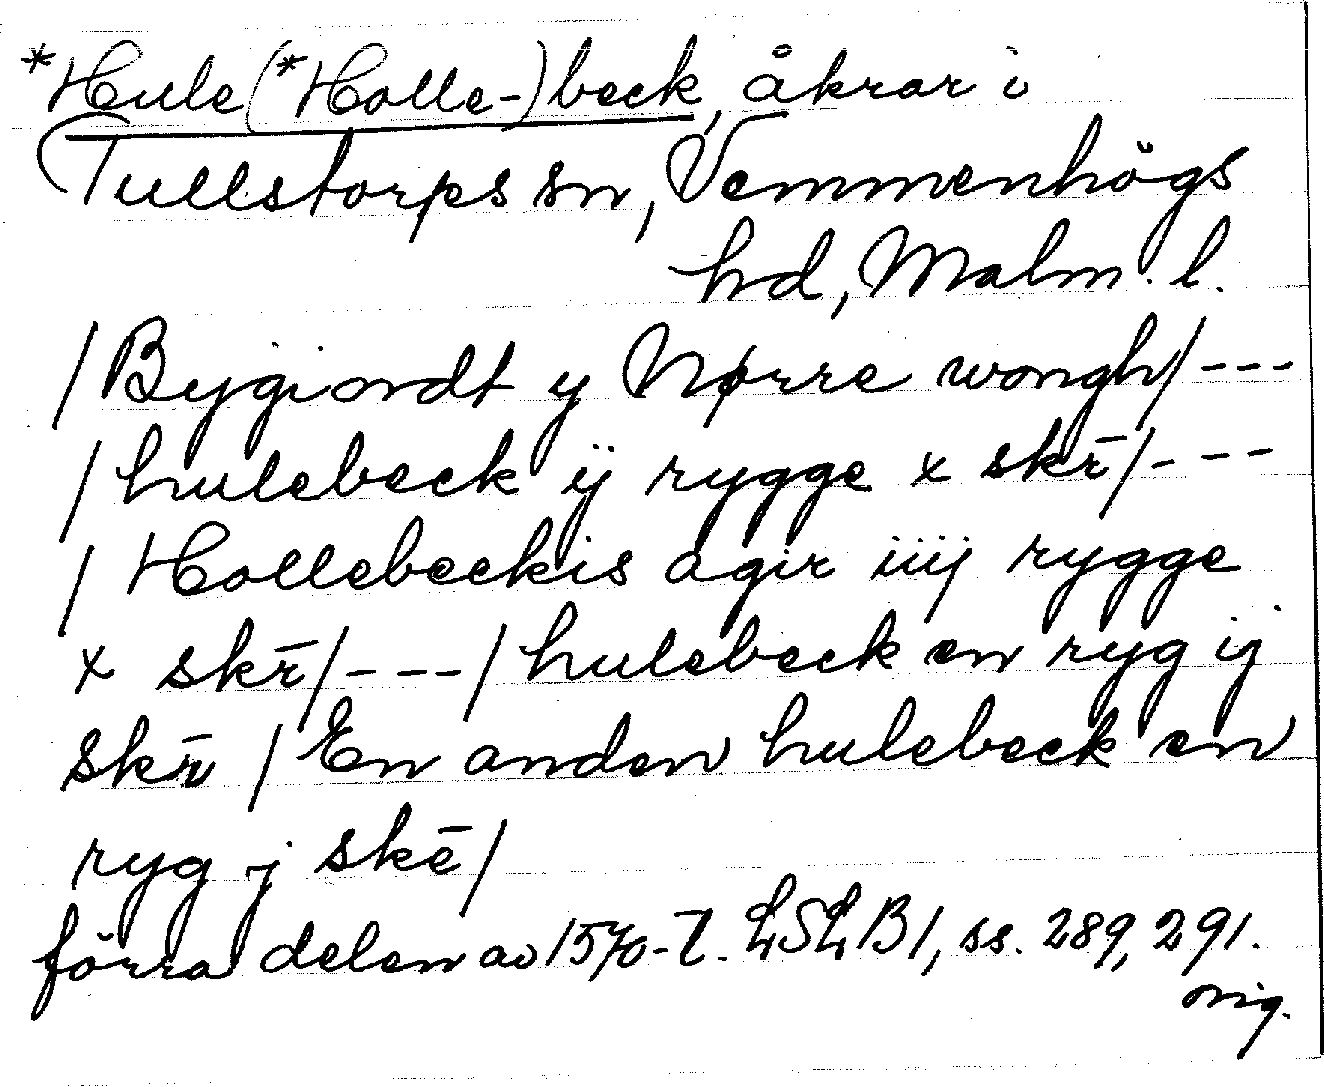 *Hule(*Holle-)beck, åkrar i
Tullstorps sn, Vemmenhögs
hd, Malm. l.
/Bygiordt y Nørre wongh/---
/hulebeck ÿ rygge x skr̄/---
/Hollebeckis agir iiij rygge
x skr̄/---/hulebeck en ryg ij
skr̄ /En anden hulebeck en
ryg j skē/
förra delen av 1570-t. LSLB1, ss. 289, 291.
orig.